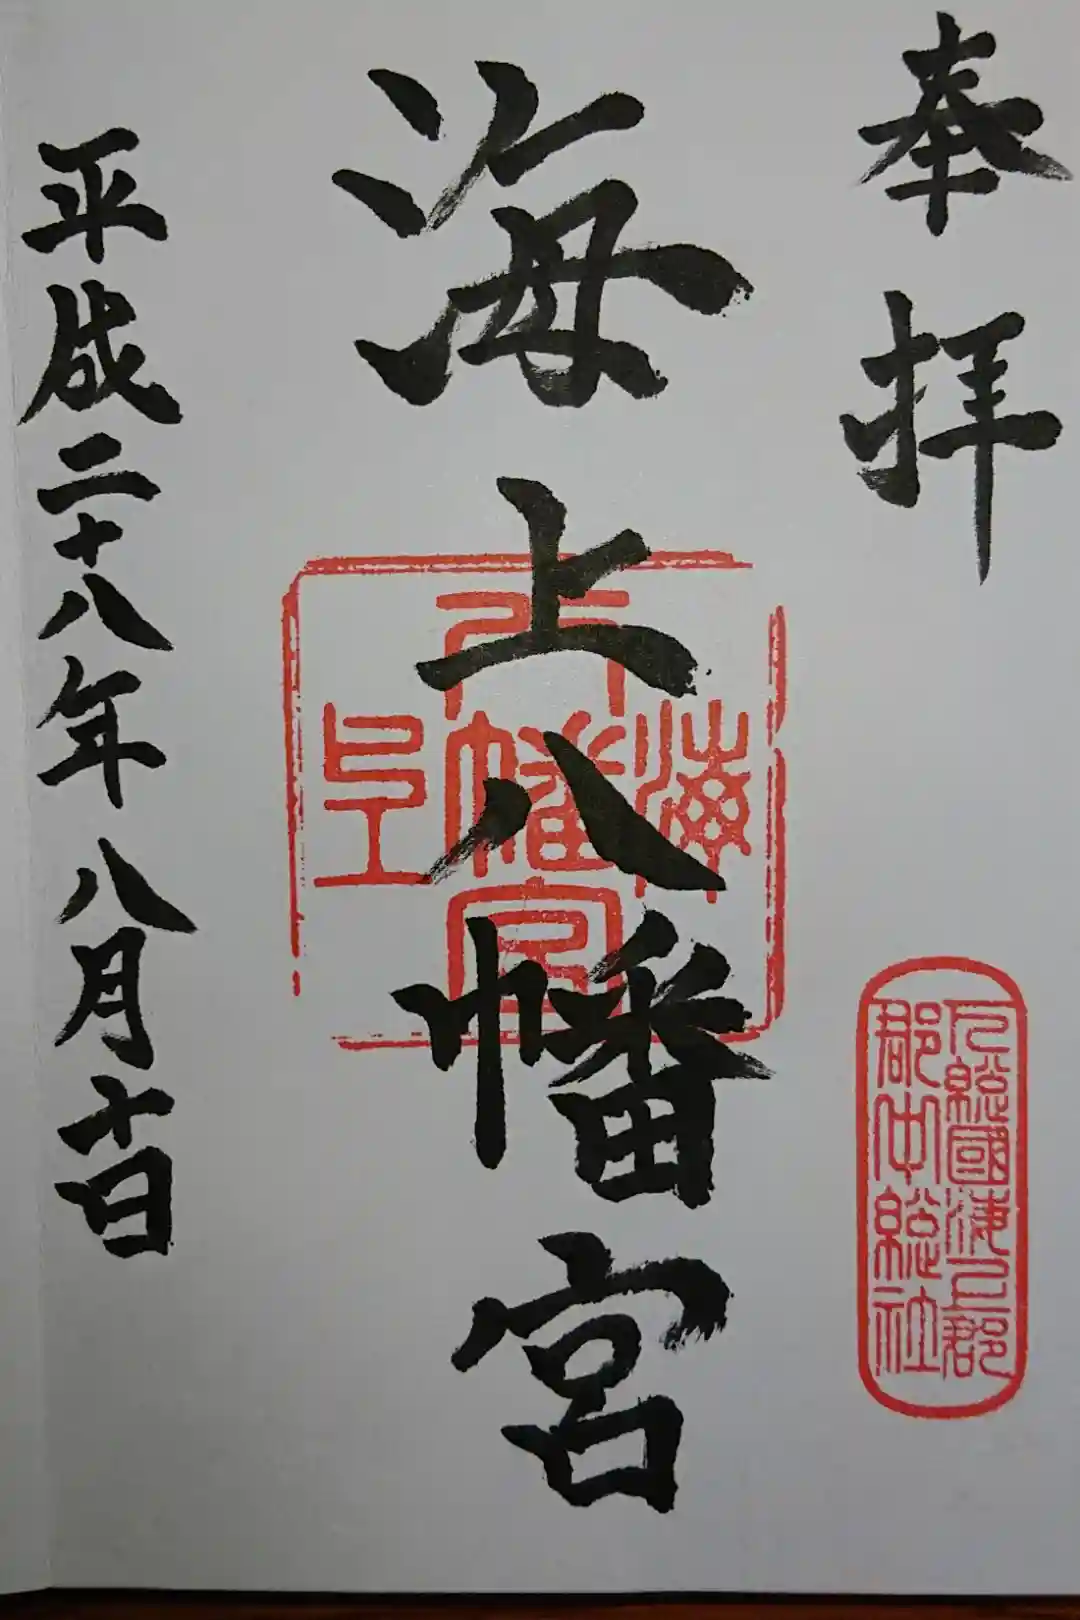 奉拝
下總國海上郡
郡中総社
海上八幡宮
海上
八幡宮
印
平成二十八年八月十日